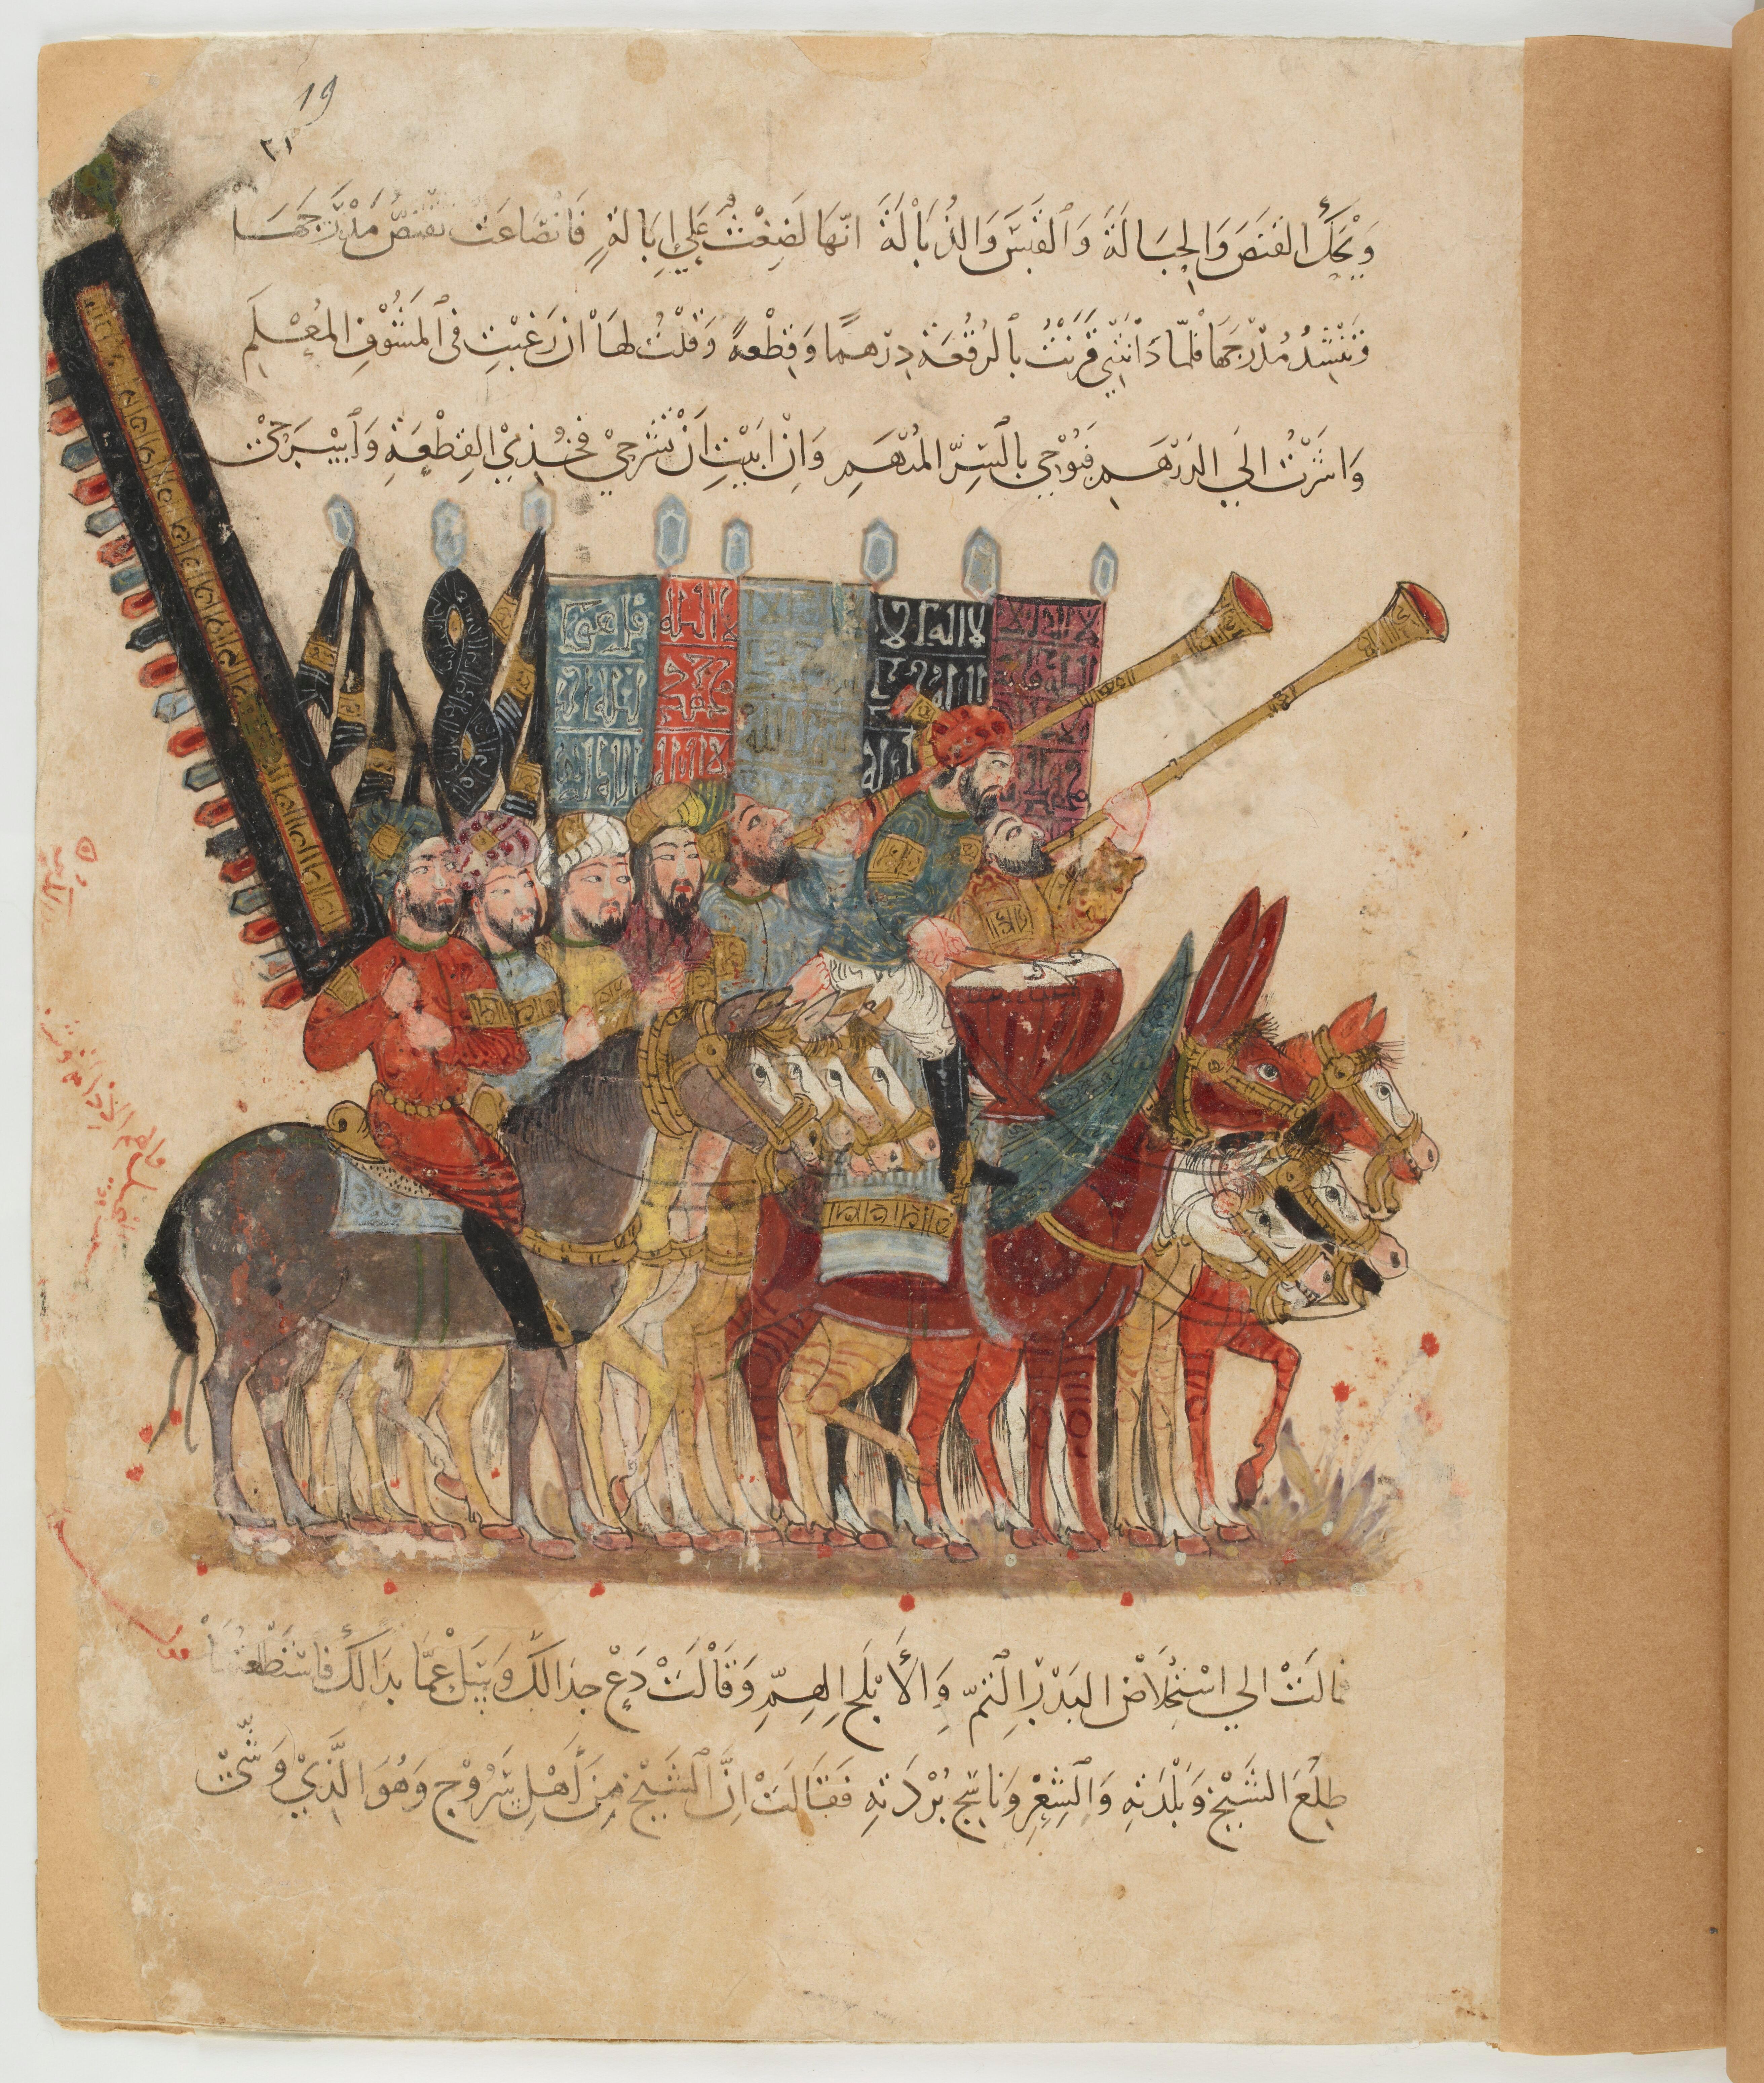 19
٢١
وَيْحَكِ القَنَصَ وَالحِبَالَةَ وَالقَبَسَ وَالذُّبَالَةَ انّهَا لَضِغْثٌ عَلَى اِبَالَةٍ فَانْصَاعَتْ تقتصُّ مَدْرَجَهَا
وَتَنْشُدُ مُدْرَجَهَا فلمّا دَانَتْنِي قَرَنْتُ بالرُقْعَةِ دِرْهمًا وَقِطْعةً وَقُلْتُ لهَا اِن رَغِبْتِ فى المَشُوْفِ المُعْلَمِ
وَاشَرْتُ الى الدِرْهَمِ فَبُوْحِي بالسِّرِّ المُبْهَمِ وَاِنْ ابَيْتِ اَنْ تَشْرَحِيْ فَخُذِيْ القِطْعَةَ وَاسْرَحِيْ
لا اله الا
الله
محمد
لا اله
فمالَتْ الى اسْتِخْلاَصِ البَدْرِ التِّمّ وَالاَبْلَجِ الهِمِّ وَقَالَتْ دَعْ جِدَالَكَ وَسَلْ عمَّا بدَالَكَ فَاسْتَطْلَعْتُهَا
طِلْعَ الشَّيْخِ وَبَلْدَتِهِ وَالشِعْرِ وَنَاسِجِ بُرْدَتِهِ فَقَالَتْ اِنَّ الشَيْخَ مِنْ اَهْلِ سَرُوْج وَهُوَ الَّذِيْ وَشَّى